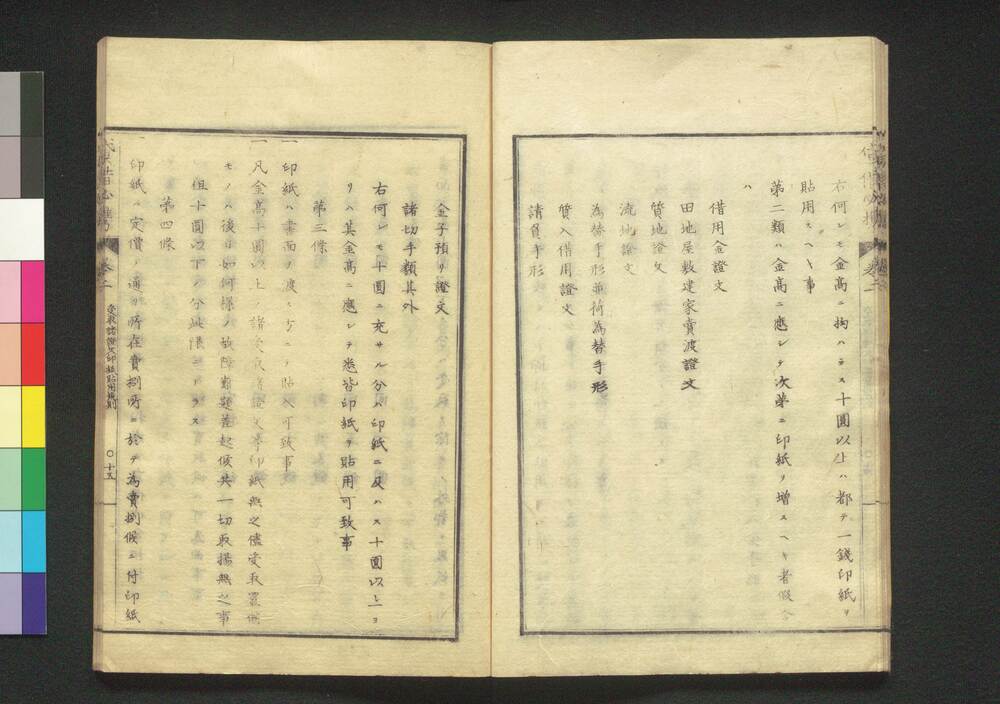 右何レモ金高ニ拘ハラス十圓以上ハ都テ一錢印紙ヲ
貼用スヘキ事
第二類ハ金高ニ應シテ次第ニ印紙ヲ増スヘキ者假令
ハ
借用金證文
田地屋敷建家賣渡證文
質地證文
流地證文
為替手形並荷為替手形
質入借用證文
請負手形
金子預リ證文
諸切手類其外
右何レモ十圓ニ充サル分ハ印紙ニ及ハス十圓以上ヨ
リハ其金高ニ應シテ悉皆印紙ヲ貼用可致事
第三條
一 印紙ハ書面ヲ渡ス方ニテ貼入可致事
一 凡金高十圓以上ノ諸受取諸證文等印紙無之儘受取置候
モノハ後日如何様ノ故障差起候共一切取揚無之事
但十圓以下ノ分此限ニアラス
第四條
一 印紙ハ定價ノ通リ所在賣捌所ニ於テ為賣捌候ニ付印紙
卷二
受取諸證文印紙貼用規則
〇十五